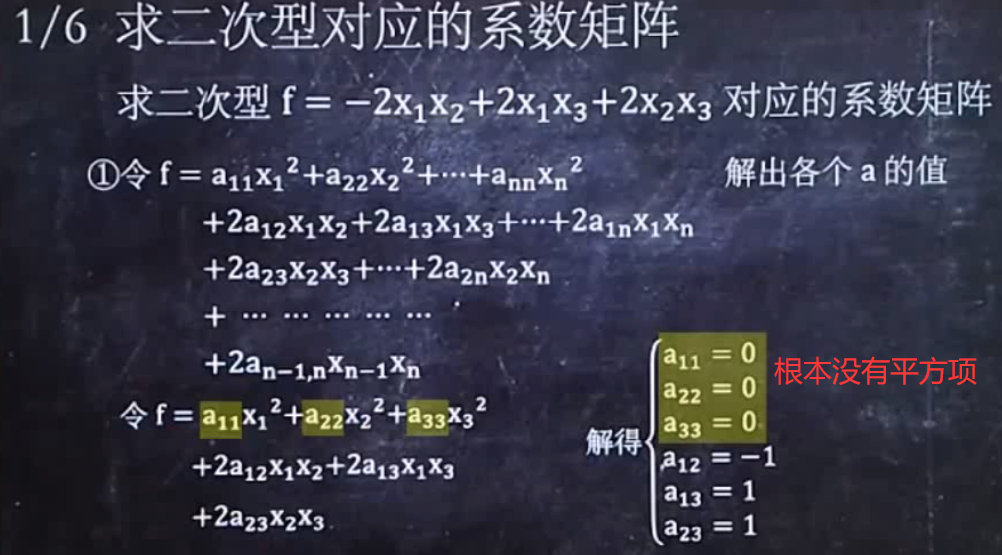 1/6 求二次型对应的系数矩阵
求二次型 f = −2x₁x₂+2x₁x₃+2x₂x₃ 对应的系数矩阵
①令 f = a₁₁x₁²+a₂₂x₂²+⋯+aₙₙxₙ² 解出各个 a 的值
+2a₁₂x₁x₂+2a₁₃x₁x₃+⋯+2a₁ₙx₁xₙ
+2a₂₃x₂x₃+⋯+2a₂ₙx₂xₙ
+ ⋯ ⋯ ⋯ ⋯ ⋯
+2aₙ₋₁,ₙxₙ₋₁xₙ
令 f = a₁₁x₁²+a₂₂x₂²+a₃₃x₃²
+2a₁₂x₁x₂+2a₁₃x₁x₃
+2a₂₃x₂x₃
解得
a₁₁ = 0
a₂₂ = 0
a₃₃ = 0
a₁₂ = −1
a₁₃ = 1
a₂₃ = 1
根本没有平方项